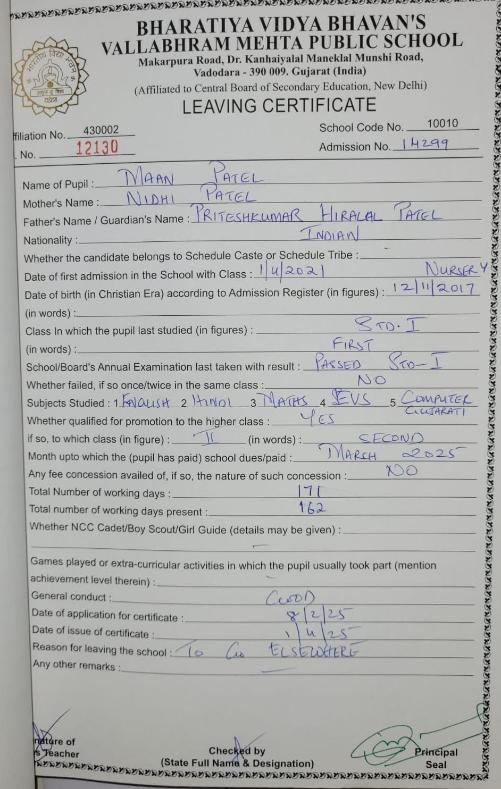 BHARATIYA VIDYA BHAVAN'S
VALLABHRAM MEHTA PUBLIC SCHOOL
Makarpura Road, Dr. Kanhaiyalal Maneklal Munshi Road,
Vadodara - 390 009. Gujarat (India)
(Affiliated to Central Board of Secondary Education, New Delhi)
LEAVING CERTIFICATE
filiation No. 430002 School Code No. 10010
. No. 12130 Admission No. 14299
Name of Pupil : MAAN PATEL
Mother's Name : NIDHI PATEL
Father's Name / Guardian's Name : PRITESHKUMAR HIRALAL PATEL
Nationality : INDIAN
Whether the candidate belongs to Schedule Caste or Schedule Tribe : -
Date of first admission in the School with Class : 1/4/2021 NURSERY
Date of birth (in Christian Era) according to Admission Register (in figures) : 12/11/2017
(in words) :
Class In which the pupil last studied (in figures) : STD. I
(in words) : FIRST
School/Board's Annual Examination last taken with result : PASSED STD-I
Whether failed, if so once/twice in the same class : NO
Subjects Studied : 1 ENGLISH 2 HINDI 3 MATHS 4 EVS 5 COMPUTER
GUJARATI
Whether qualified for promotion to the higher class : YES
if so, to which class (in figure) : II (in words) : SECOND
Month upto which the (pupil has paid) school dues/paid : MARCH 2025
Any fee concession availed of, if so, the nature of such concession : NO
Total Number of working days : 171
Total number of working days present : 162
Whether NCC Cadet/Boy Scout/Girl Guide (details may be given) :
-
Games played or extra-curricular activities in which the pupil usually took part (mention
achievement level therein) : -
General conduct : GOOD
Date of application for certificate : 8/2/25
Date of issue of certificate : 1/4/25
Reason for leaving the school : To Go ELSEWHERE
Any other remarks : -
nature of
s Teacher
Checked by
(State Full Name & Designation)
Principal
Seal